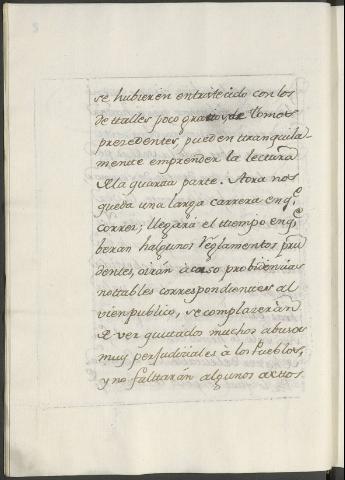 se hubieren entristecido con los
detalles poco gratos de tomos
prezedentes, pueden tranquila-
mente emprender la lectura
de la quarta parte. Aora nos
queda una larga carrera en q.e
correr; llegará el tiempo en q.e
beran halgunos reglamentos pru
dentes, oirán acaso probidencias
nottables correspondientes al
vien publico, se complazerán
de ver quitados muchos abusos
muy perjudiziales à los Pueblos,
y no falttarán algunos acttos